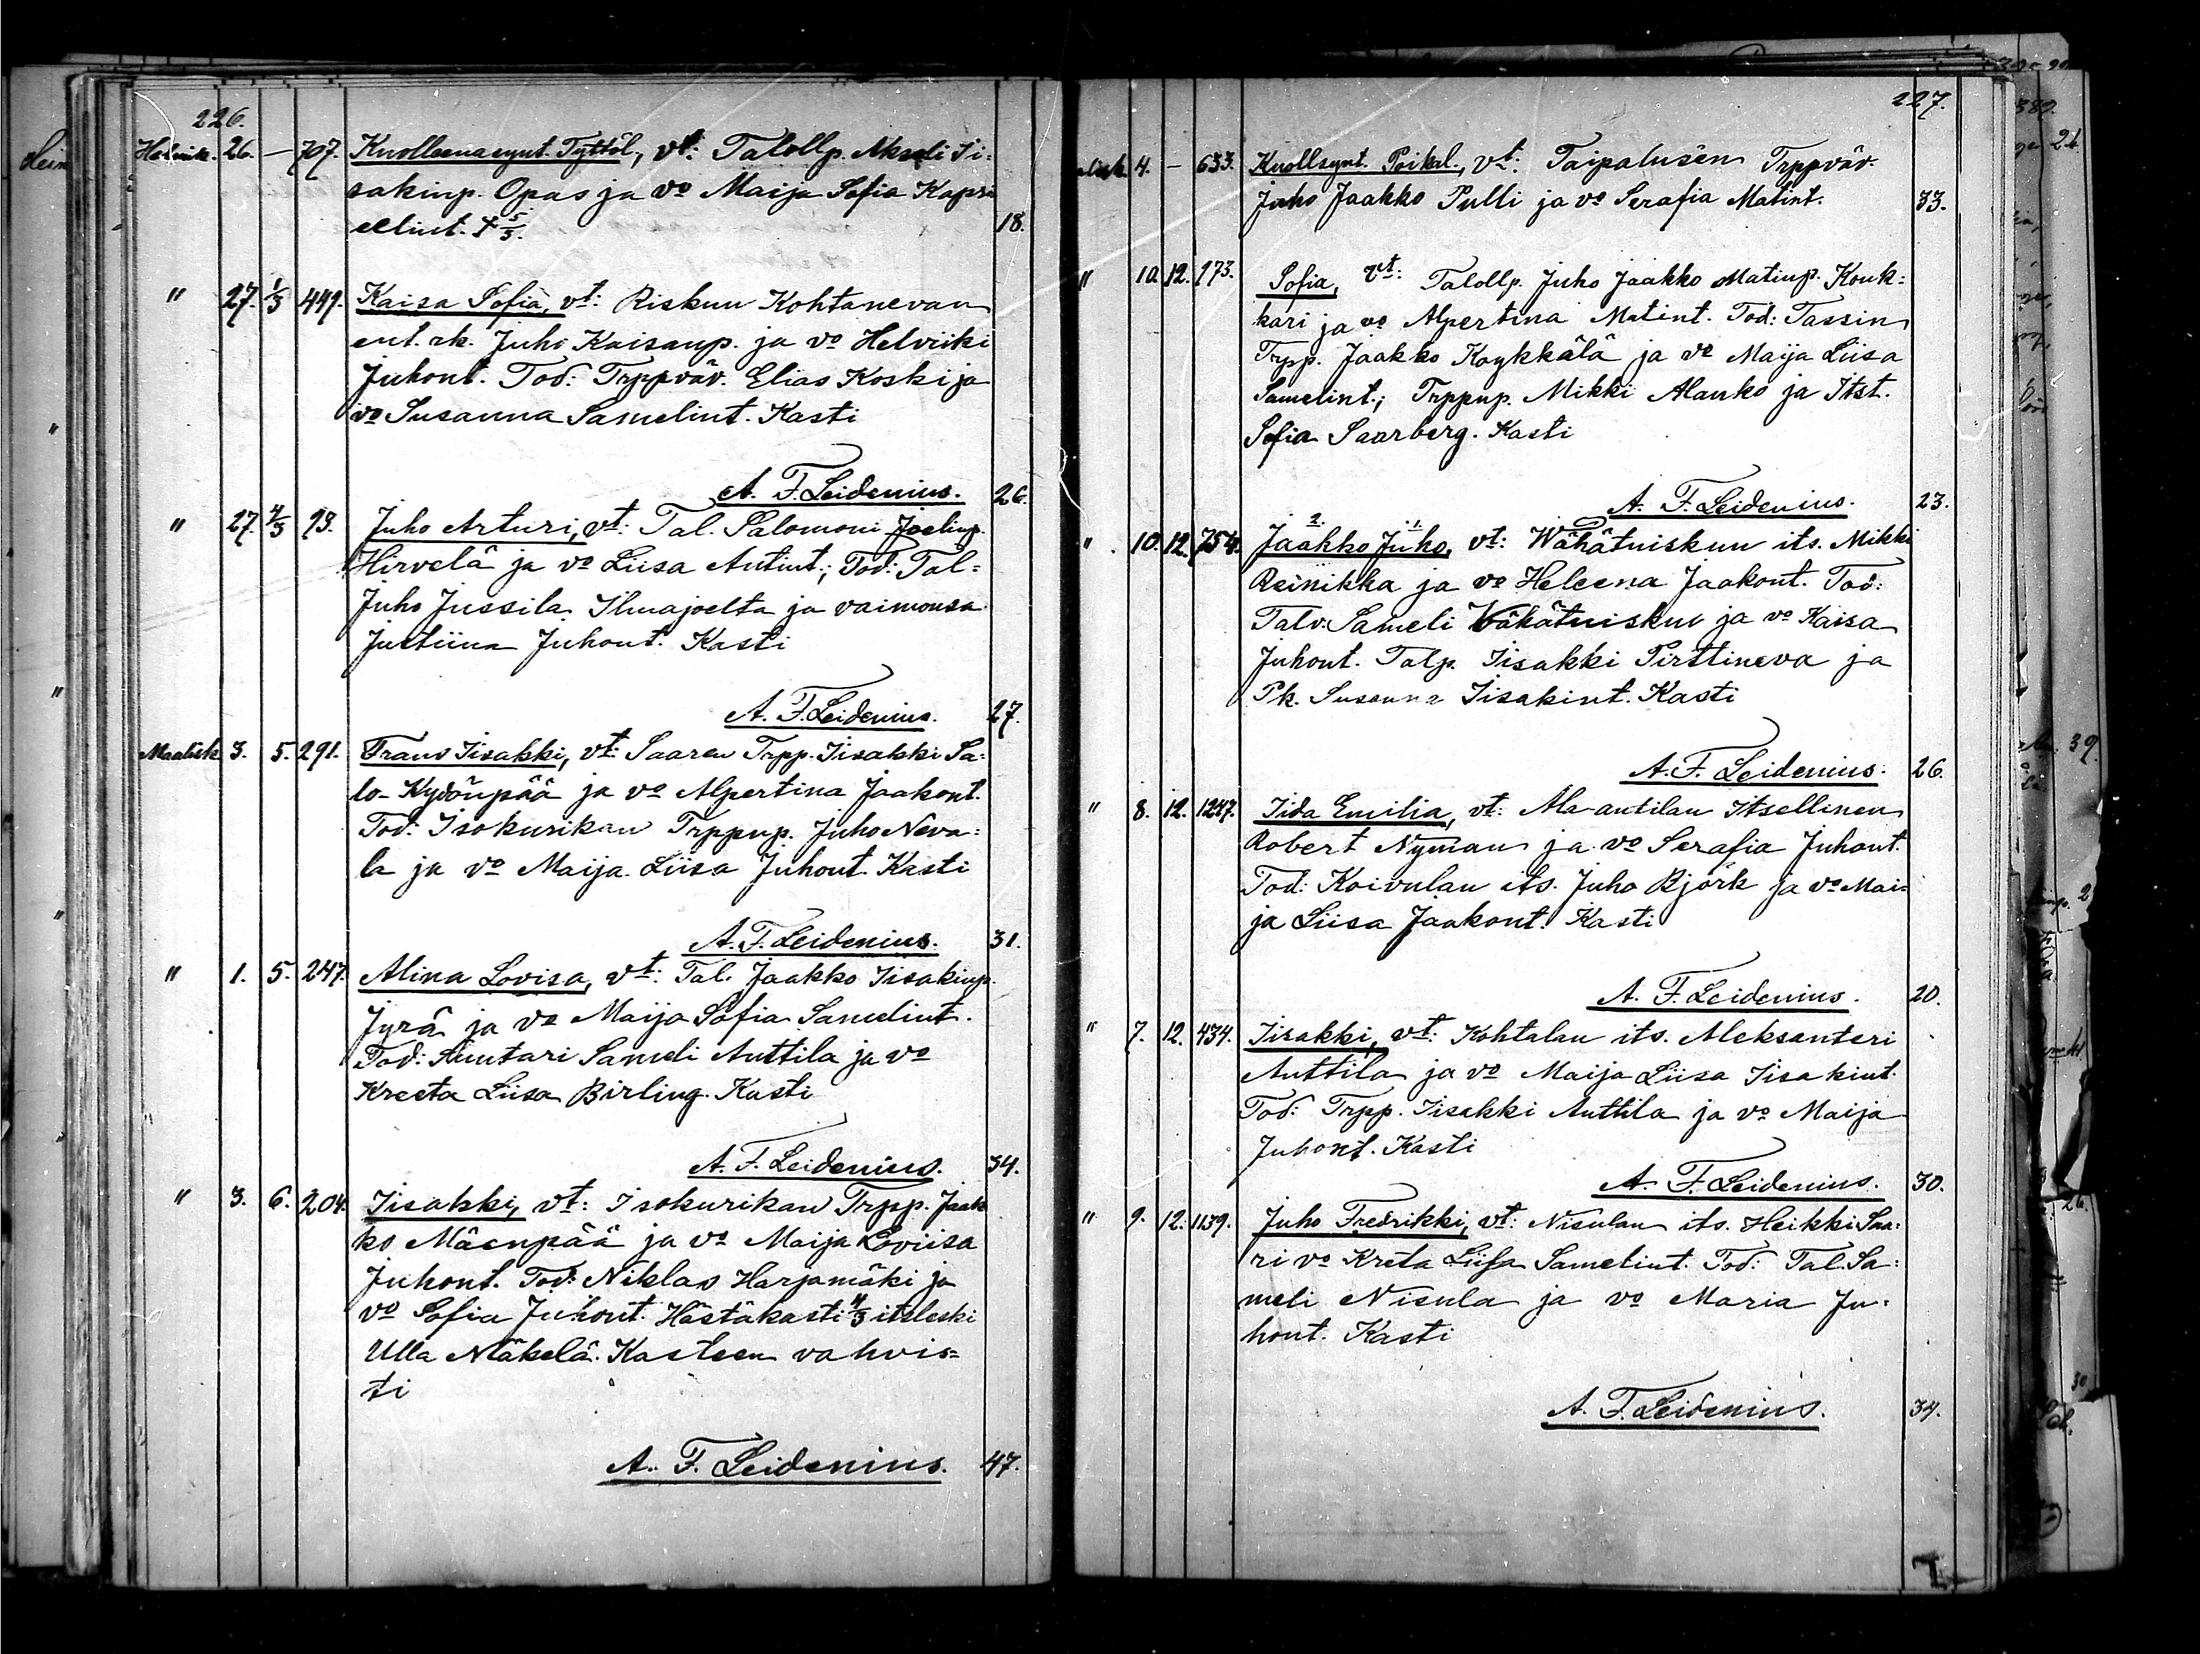 226.
Helmik. 26. — 707. Kuolleenasynt. Tyttöl, vt: Talollp. Akseli Ii-
sakinp. Opas ja vo Maija Sofia Kapri
elint. † 5/3. 18.
" 27. 1/3 449. Kaisa Sofia, vt: Riskun Kohtanevan
ent. rk. Juho Kaisanp. ja vo Helviiki
Juhont. Tod: Trppväv. Elias Koski ja
vo Susanna Samelint. Kasti
A. F. Leidenius. 26.
" 27. 4/3 93. Juho Arturi, vt: Tal. Salomoni Joelinp.
Hirvelä ja vo Liisa Antint.; Tod: Tal-
Juho Jussila Ilmajoelta ja vaimonsa
Justiina Juhont. Kasti
A. F. Leidenius. 27.
Maalisk 3. 5. 291. Frans Iisakki, vt: Saaren Trpp. Iisakki Sa-
lo-Kydönpää ja vo Alpertina Jaakont.
Tod: Isokurikan Trppnp. Juho Neva-
la ja vo Maija Liisa Juhont. Kasti
A. F. Leidenius. 31.
" 1. 5. 247. Alina Lovisa, vt: Tal. Jaakko Iisakinp.
Jyrä ja vo Maija Sofia Samelint.
Tod: Suutari Sameli Anttila ja vo
Kreeta Liisa Birling. Kasti
A. F. Leidenius. 34.
" 3. 6. 204. Iisakki, vt: Isokurikan Trpp. Jaak
ko Mäenpää ja vo Maija Loviisa
Juhont. Tod: Niklas Harjamäki ja
vo Sofia Juhont. Hästäkasti 4/3 itsleski
Ulla Mäkelä. Kasteen vahvis-
ti
A. F. Leidenius. 47.
227.
4. — 633. Kuollsynt. Poikal., vt: Taipalusen Trppväv.
Juho Jaakko Pulli ja vo Serafia Matint. 33.
" 10. 12. 173. Sofia, vt: Talollp. Juho Jaakko Matinp. Kouk-
kari ja vo Alpertina Matint. Tod: Tassin
Trpp. Jaakko Koykkälä ja vo Maija Liisa
Samelint.; Trppnp. Mikki Alanko ja Itst.
Sofia Saarberg. Kasti
A. F. Leidenius. 23.
" 10. 12. 754. Jaakko 2. Juho 1., vt: Wähätuiskun its. Mikki
Reinikka ja vo Heleena Jaakont. Tod:
Talv. Sameli Vähätuisku ja vo Kaisa
Juhont. Talp. Iisakki Pirttineva ja
Pk. Susanna Iisakint. Kasti
A. F. Leidenius. 26.
" 8. 12. 1247. Iida Emilia, vt: Ala-antilan Itsellinen
Robert Nyman ja vo Serafia Juhont.
Tod: Koivulan its. Juho Björk ja vo Mai-
ja Liisa Jaakont. Kasti
A. F. Leidenius. 20.
" 7. 12. 434. Iisakki, vt: Kohtalan its. Aleksanteri
Anttila ja vo Maija Liisa Iisakint.
Tod: Trpp. Iisakki Anttila ja vo Maija
Juhont. Kasti
A. F. Leidenius. 30.
" 9. 12. 1139. Juho Fredrikki, vt: Nisulan its. Heikki Saa-
ri vo Kreta Liisa Samelint. Tod: Tal. Sa-
meli Nisula ja vo Maria Ju-
hont. Kasti
A. F. Leidenius. 34.